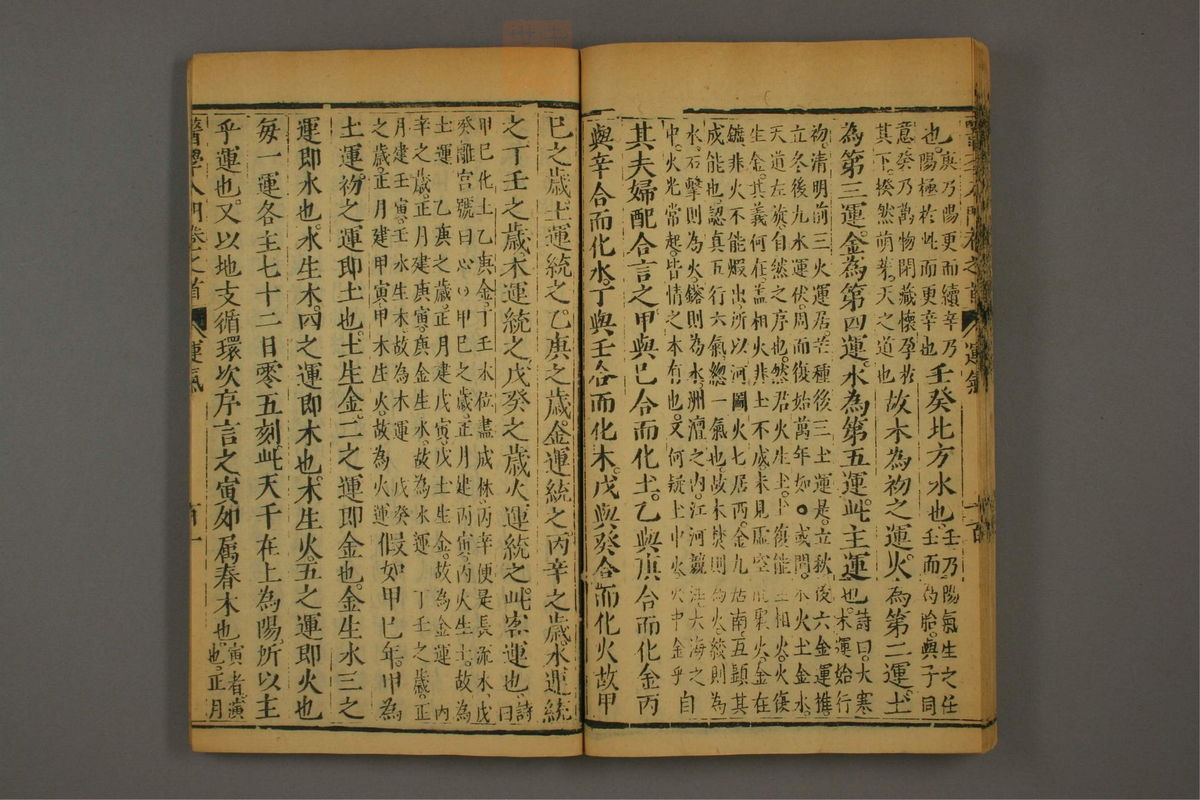 也。庚乃陽更而續辛乃
也。陽極於此而更辛也
壬癸北方水也。
壬乃陽氣生之任
也。壬而為胎。與子同
意癸乃萬物閉藏懷孕於
其下。揆然萌芽。天之道也
故木為初之運。火為第二運。土
為第三運。金為第四運。水為第五運。此主運也。
詩曰。大寒
木運始行
初。清明前三火運居。芒種後三土運是。立秋後六金運推。
立冬後九水運伏。周而復始萬年如。○或問。木火土金水。
天道左旋。自然之序也。然君火生土。土復能生相火。火復
生金。其義何在。蓋相火非土不成。未見虛空能聚火。金在
鑛非火不能煅出。所以河圖火七居西。金九居南。互顯其
成能也。認真五行六氣總一氣也。故木焚則為火。絞則為
水。石擊則為火。鎔則為水。洲澶之內。江河競注。大海之
中。火光常起。皆情之本有也。又何疑土中火。火中金乎
自
其夫婦配合言之。甲與己合而化土。乙與庚合而化金。丙
與辛合而化水。丁與壬合而化木。戊與癸合而化火。故甲
己之歲。土運統之。乙庚之歲。金運統之。丙辛之歲。水運統
之。丁壬之歲。木運統之。戊癸之歲。火運統之。此客運也。
詩
曰
甲己化土乙庚金。丁壬木位盡成林。丙辛便是長流水。戊
癸離宮號曰心。○甲己之歲。正月建丙寅。丙火生土。故為
土運 乙庚之歲。正月建戊寅。戊土生金。故為金運 丙
辛之歲。正月建庚寅。庚金生水。故為水運 丁壬之歲。正
月建壬寅。壬水生木。故為木運 戊癸
之歲。正月建甲寅。甲木生火。故為火運
假如甲己年。甲為
土運。初之運即土也。土生金。二之運即金也。金生水。三之
運即水也。水生木。四之運即木也。木生火。五之運即火也
每一運各主七十二日零五刻。此天干在上為陽。所以主
乎運也。又以地支循環次序言之。寅卯屬春木也。
寅者演
也。正月
醫學入門卷之首 運氣 百一